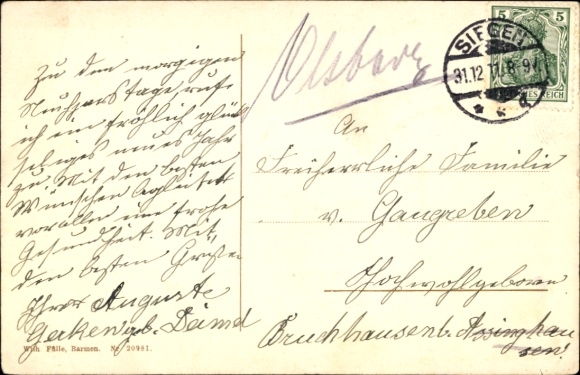 Zu dem morgigen
Neujahrstage rufe
ich ein fröhlich glück
seliges neues Jahr
zu. Mit den besten
Wünschen begleitet
vor allem eine frohe
Gesundheit. Mit
den besten Grüßen
Ihre Auguste
Gerken geb. Damd
Wilh. Fülle, Barmen. Nr. 20981.
Olsberg
SIEGEN
31.12.11. 8-9V.
5 5
DEUTSCHES REICH
An
Freiherrliche Familie
v. Gaugreben
Hochwohlgeboren
Bruchhausen b. Assinghau
sen!